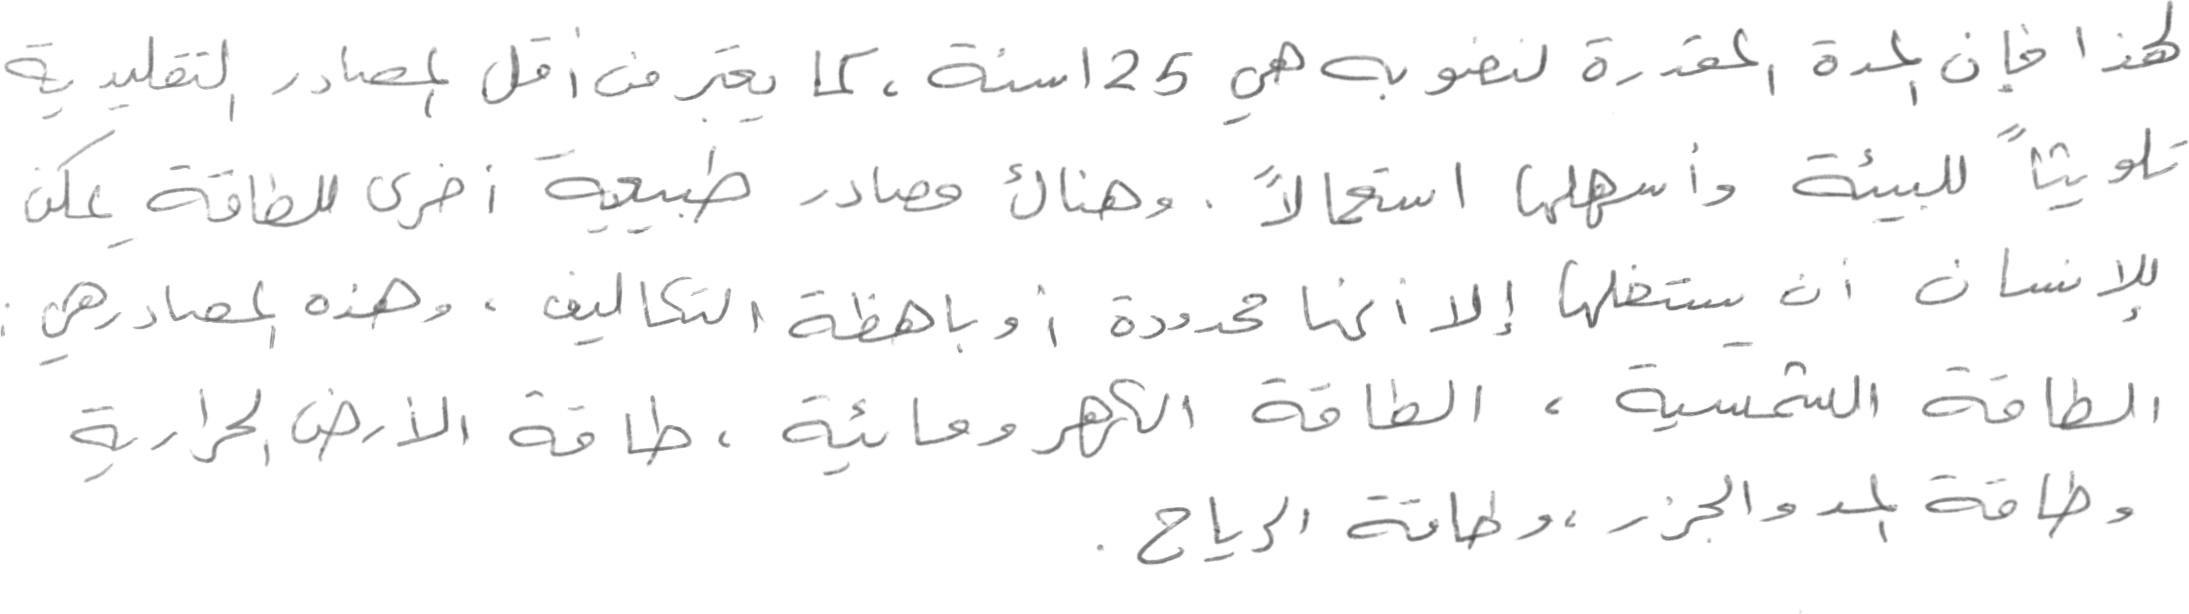 لهذا فإن المدة المقدرة لنضوبه هي 125 سنة ، كما يعتبر من أقل المصادر التقليدية
تلويثاً للبيئة وأسهلها استعمالاً . وهناك مصادر طبيعية أخرى للطاقة يمكن
للإنسان أن يستغلها إلا أنها محدودة أو باهظة التكاليف ، وهذه المصادر هي :
الطاقة الشمسية ، الطاقة الكهرومائية ، طاقة الأرض الحرارية
وطاقة المد والجزر ، وطاقة الرياح .